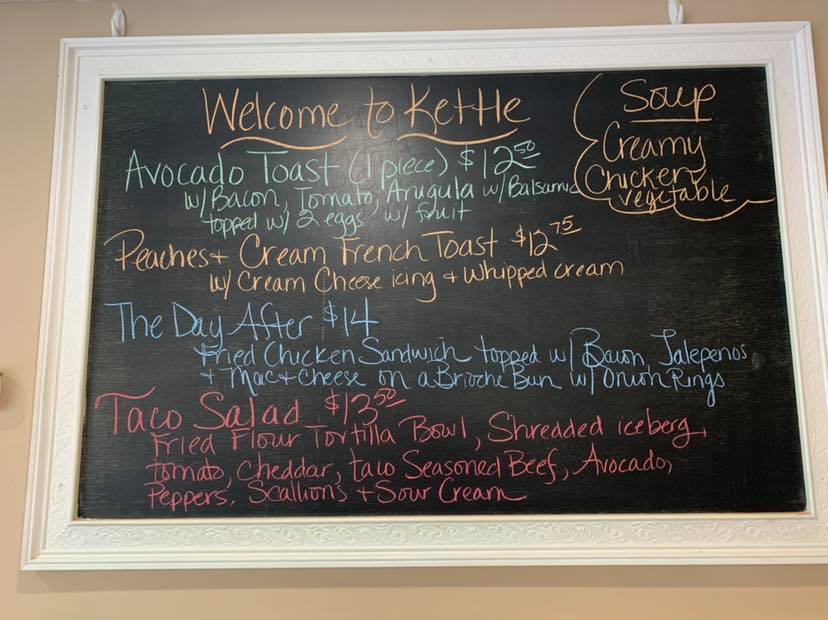 Welcome to Kettle
Avocado Toast (1 piece) $12.50
w/ Bacon, Tomato, Arugula w/ Balsamic
topped w/ 2 eggs w/ fruit
Peaches + Cream French Toast $12.75
w/ Cream Cheese icing + Whipped cream
The Day After $14
Fried Chicken Sandwich topped w/ Bacon, Jalepenos
+ Mac + Cheese on a Brioche Bun w/ Onion Rings
Taco Salad $13.50
Fried Flour Tortilla Bowl, Shredded iceberg,
tomato, cheddar, taco Seasoned Beef, Avocado,
Peppers, Scallions + Sour Cream
Soup
Creamy
Chicken
vegetable